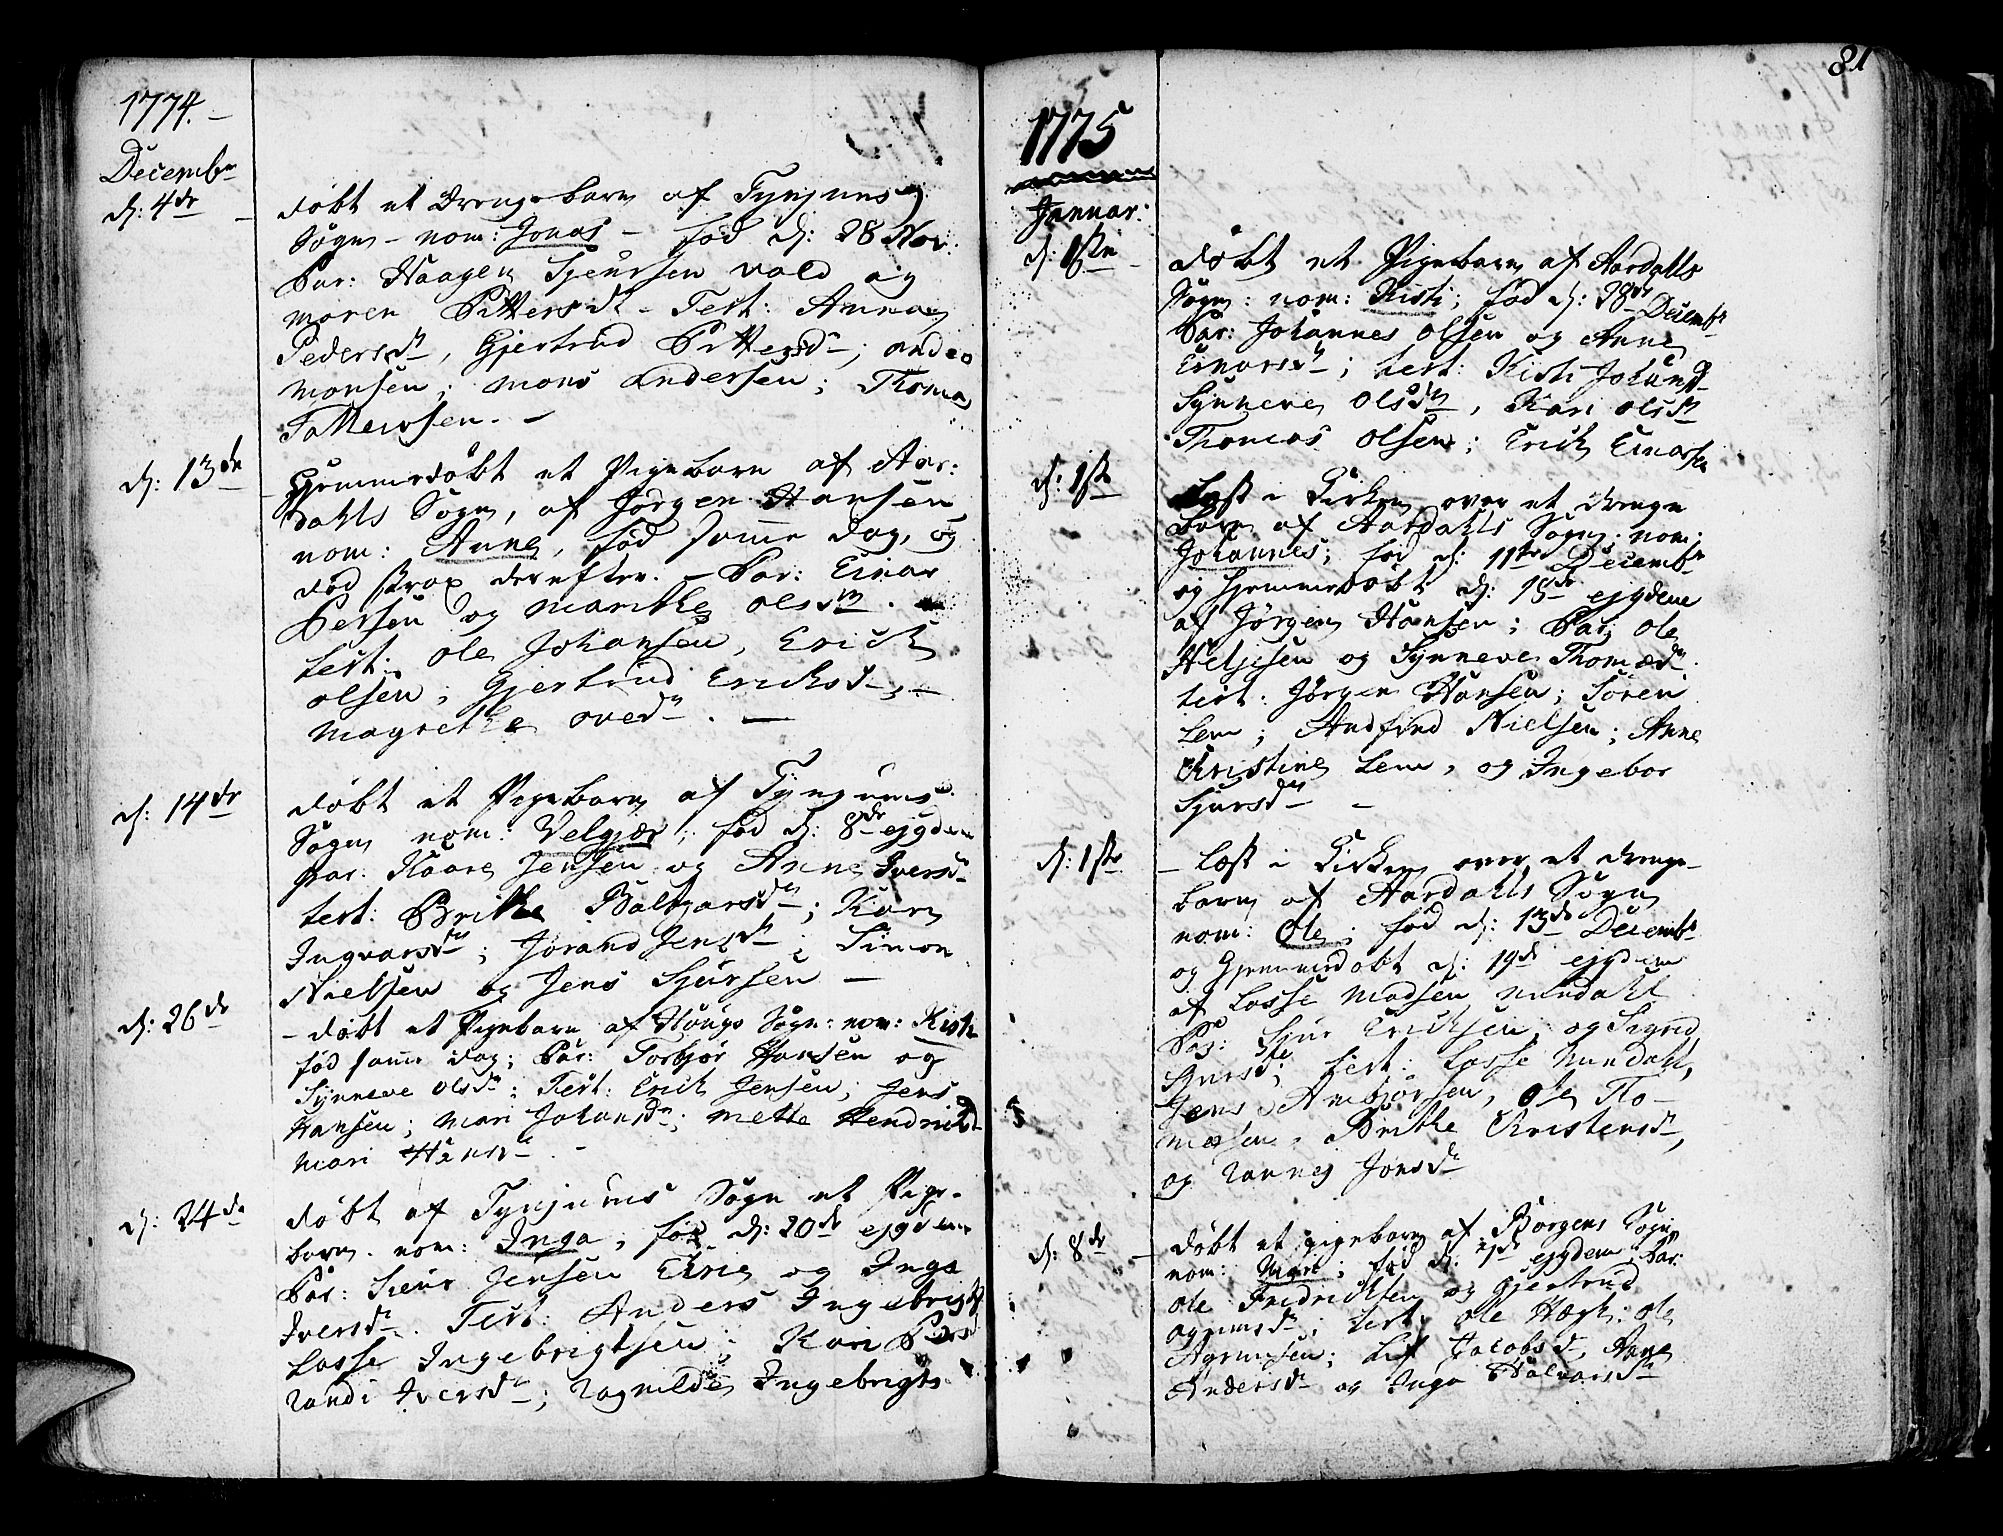 1774.
Decembr
d: 4de
døbt et Drengebarn af Tynjums
Sogn - nom: Jonas - fød d: 28 Nov:
Par: Haagen Sjeursen vold og
Maren Pittersdr - Test: Anna
Pedersdr, Gjertrud Pittersdr; Anders
Monsen; Mons Andersen; Thomas
Tollewsen. -
d: 13de
Hjemmedøbt et Pigebarn af Aar:
dahls Sogn, af Jørgen Hansen
nom: Anne, fød samme dag, og
død strax derefter. - Par: Einar
Persen og Marithe Olsdr.
test: Ole Johansen, Erick
Olsen, Gjertrud Ericksdr, -
Magrethe Ovedr. -
d: 14de
døbt et Pigebarn af Tynjums
Sogn nom: Velgjær; fød d: 8de ejusdem
par: Kaare Jensen og Anne Iversdr
test: Brithe Baltharsdr; Kari
Ingvarsdr; Jorand Jensdr; Simon
Nielsen og Jens Sjursen -
d: 26de
- døbt et Pigebarn af Hougs Sogn: nom: Kisti
fød samme dag; Par: Torbjør Hansen og
Synneve Olsdr; Test: Erick Jensen; Jens
Hansen; Mari Johansdr; Mette Hendriksdr
Mari Hansdr. -
d: 24de
døbt af Tynjums Sogn et Pige-
barn. nom: Inga, fød d: 20de ejusdem
Par: Sjeur Jensen Eirie og Inga
Iversdr. Test: Anders Ingebrigts
Lasse Ingebrigtsen; Kari Persd
Randi Iversdr; Ragnilde Ingebrigts
81
1775
Januar:
d: 1ste
døbt et Pigebarn af Aardalls
Sogn: nom: Kisti; fød d: 28de Decembr
Par: Johannes Olsen og Anne
Einarsdr; test: Kisti Johansd
Synneve Olsdr, Kari Olsdr
Thomas Olsen; Erick Einarsen
d: 1ste
Læst i Kirken over et drenge
barn af Aardahls Sogn: nom:
Johannes; fød d: 11te Decembr
og hjemmedøbt d: 15de ejusdem
af Jørgen Hansen; Par: Ole
Heljesen og Synneve Thomædr.
test: Jørgen Hansen; Søren
Lem; Andfind Nielsen; Anne
Kristine Lem, og Ingebor
Sjursdr -
d: 1ste
- Læst i Kirken over et drenge-
barn af Aardahls Sogn
nom: Ole; fød d: 13de Decembr
og hjemmedøbt d: 19de ejusdem
af Lasse Madsen Nundahl
Par: Sjur Ericksen og Sigrid
Sjursdr; test: Lasse Nundahl,
Jens Ambjørsen, Ole To-
mæsen, Brithe Kristensdr,
og Rannej Jonsdr
d: 8de
- døbt et pigebarn af Borgens Sogn
nom: Mari; fød d: 1ste ejusdem Par:
Ole Fridricksen og Gjertrud
Ogmunsdr; test: Ole Hægh: Ole
Agmunsen; Lisf Jacobsdr, Anne
Andersdr og Inga Halvarsdr